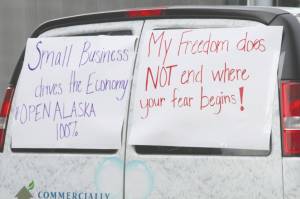 Small Business
drives the Economy
#OPEN ALASKA
100%
My Freedom does
NOT end where
your fear begins!
COMMERCIALLY